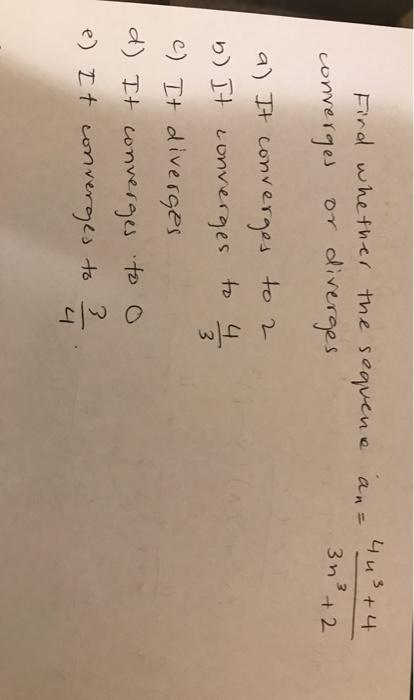 Find whether the sequene an = 4n³ + 4 / 3n³ + 2
converges or diverges
a) It converges to 2
b) It converges to 4/3
c) It diverges
d) It converges to 0
e) It converges to 3/4.